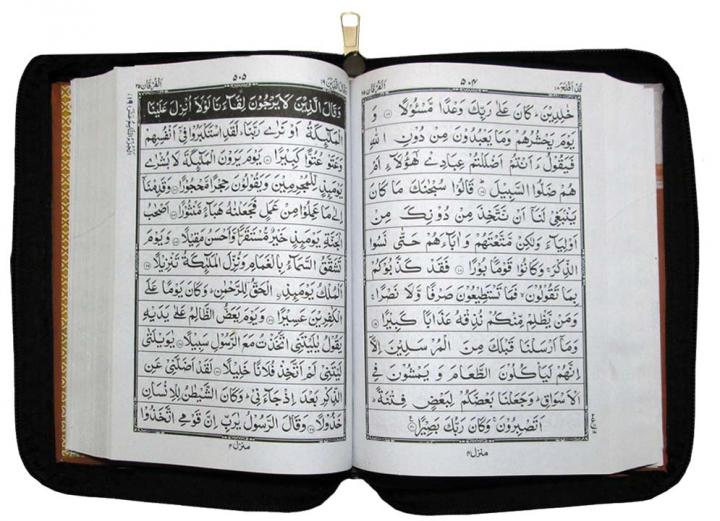 قد افلح ۱۸ ۵۰۴ الفرقان ۲۵
خٰلِدِيْنَ ؕ كَانَ عَلٰى رَبِّكَ وَعْدًا مَّسْـُٔوْلًا ۝ وَ
يَوْمَ يَحْشُرُهُمْ وَمَا يَعْبُدُوْنَ مِنْ دُوْنِ اللّٰهِ
فَيَقُوْلُ ءَاَنْتُمْ اَضْلَلْتُمْ عِبَادِيْ هٰٓؤُلَآءِ اَمْ
هُمْ ضَلُّوا السَّبِيْلَ ؕ قَالُوْا سُبْحٰنَكَ مَا كَانَ
يَنْۢبَغِيْ لَنَآ اَنْ نَّتَّخِذَ مِنْ دُوْنِكَ مِنْ
اَوْلِيَآءَ وَلٰكِنْ مَّتَّعْتَهُمْ وَاٰبَآءَهُمْ حَتّٰى نَسُوا
الذِّكْرَ ۚ وَكَانُوْا قَوْمًۢا بُوْرًا ۝ فَقَدْ كَذَّبُوْكُمْ
بِمَا تَقُوْلُوْنَ ۙ فَمَا تَسْتَطِيْعُوْنَ صَرْفًا وَّلَا نَصْرًا ۚ
وَمَنْ يَّظْلِمْ مِّنْكُمْ نُذِقْهُ عَذَابًا كَبِيْرًا ۝
وَمَآ اَرْسَلْنَا قَبْلَكَ مِنَ الْمُرْسَلِيْنَ اِلَّآ
اِنَّهُمْ لَيَاْكُلُوْنَ الطَّعَامَ وَيَمْشُوْنَ فِي
الْاَسْوَاقِ ؕ وَجَعَلْنَا بَعْضَكُمْ لِبَعْضٍ فِتْنَةً ؕ
اَتَصْبِرُوْنَ ۚ وَكَانَ رَبُّكَ بَصِيْرًا ۝
منزل ۴
وقال الذين ۱۹ ۵۰۵ الفرقان ۲۵
وَقَالَ الَّذِيْنَ لَا يَرْجُوْنَ لِقَآءَنَا لَوْلَآ اُنْزِلَ عَلَيْنَا
الْمَلٰٓئِكَةُ اَوْ نَرٰى رَبَّنَا ؕ لَقَدِ اسْتَكْبَرُوْا فِيْٓ اَنْفُسِهِمْ
وَعَتَوْ عُتُوًّا كَبِيْرًا ۝ يَوْمَ يَرَوْنَ الْمَلٰٓئِكَةَ لَا بُشْرٰى
يَوْمَئِذٍ لِّلْمُجْرِمِيْنَ وَيَقُوْلُوْنَ حِجْرًا مَّحْجُوْرًا ۝ وَقَدِمْنَآ
اِلٰى مَا عَمِلُوْا مِنْ عَمَلٍ فَجَعَلْنٰهُ هَبَآءً مَّنْثُوْرًا ۝ اَصْحٰبُ
الْجَنَّةِ يَوْمَئِذٍ خَيْرٌ مُّسْتَقَرًّا وَّاَحْسَنُ مَقِيْلًا ۝ وَيَوْمَ
تَشَقَّقُ السَّمَآءُ بِالْغَمَامِ وَنُزِّلَ الْمَلٰٓئِكَةُ تَنْزِيْلًا ۝
اَلْمُلْكُ يَوْمَئِذِ ۨالْحَقُّ لِلرَّحْمٰنِ ؕ وَكَانَ يَوْمًا عَلَى
الْكٰفِرِيْنَ عَسِيْرًا ۝ وَيَوْمَ يَعَضُّ الظَّالِمُ عَلٰى يَدَيْهِ
يَقُوْلُ يٰلَيْتَنِى اتَّخَذْتُ مَعَ الرَّسُوْلِ سَبِيْلًا ۝ يٰوَيْلَتٰى
لَيْتَنِيْ لَمْ اَتَّخِذْ فُلَانًا خَلِيْلًا ۝ لَقَدْ اَضَلَّنِيْ عَنِ
الذِّكْرِ بَعْدَ اِذْ جَآءَنِيْ ؕ وَكَانَ الشَّيْطٰنُ لِلْاِنْسَانِ
خَذُوْلًا ۝ وَقَالَ الرَّسُوْلُ يٰرَبِّ اِنَّ قَوْمِي اتَّخَذُوْا
منزل ۴